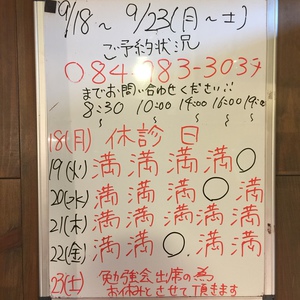 9/18～9/23(月～土)
ご予約状況
084-983-303
までお問い合わせください!!
8:30 10:00 14:00 16:00 19:00
18(月) 休診日
19(火) 満 満 満 満 ○
20(水) 満 満 満 ○ 満
21(木) 満 満 満 満 満
22(金) 満 満 ○ 満 満
23(土) 勉強会出席の為
お休みとさせて頂きます